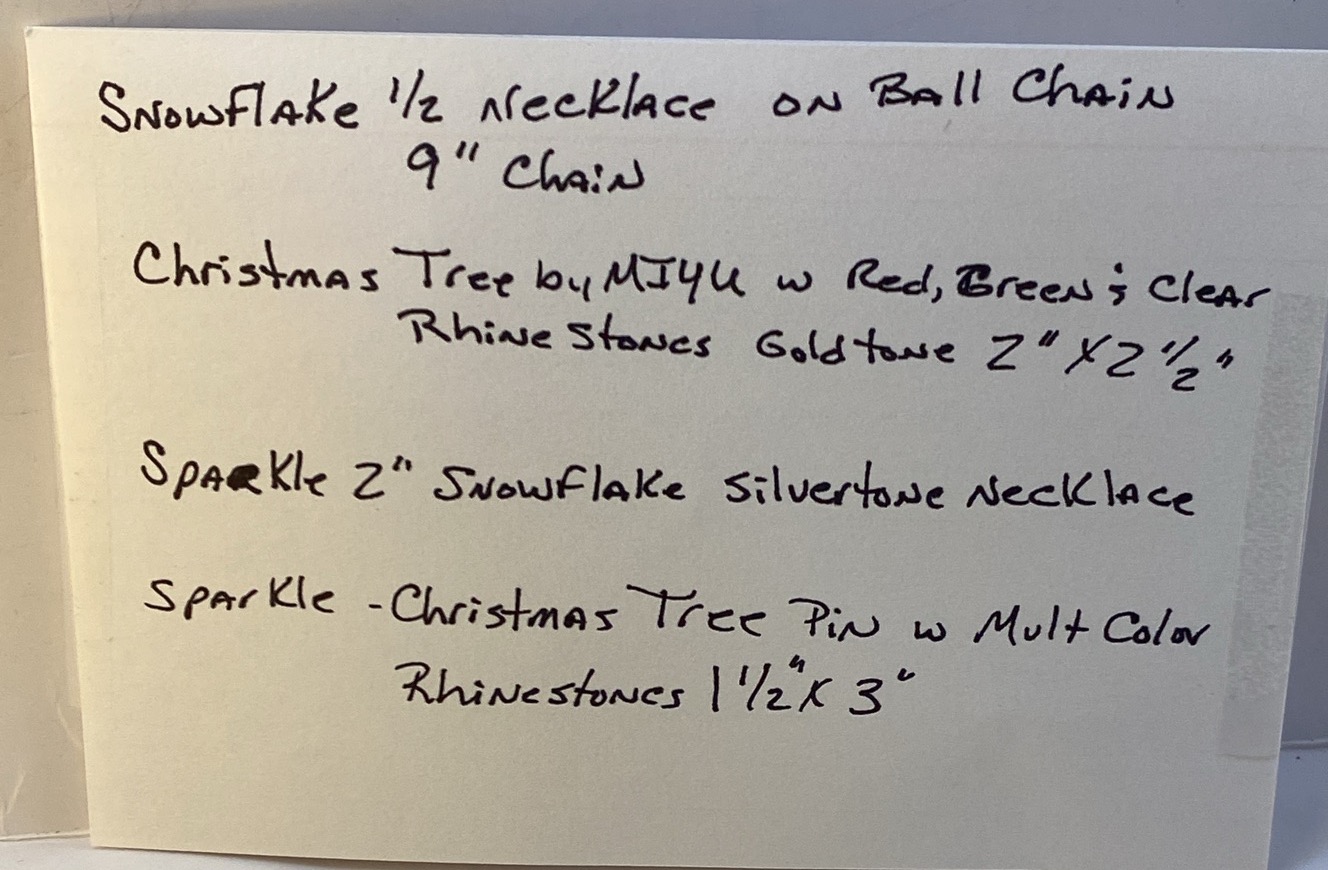 Snowflake 1/2 Necklace on Ball Chain
9" Chain
Christmas Tree by MI4U w Red, Green & Clear
Rhine Stones Goldtone 2" X 2 1/2"
Sparkle 2" Snowflake Silvertone Necklace
Sparkle - Christmas Tree Pin w Mult Color
Rhinestones 1 1/2" X 3"